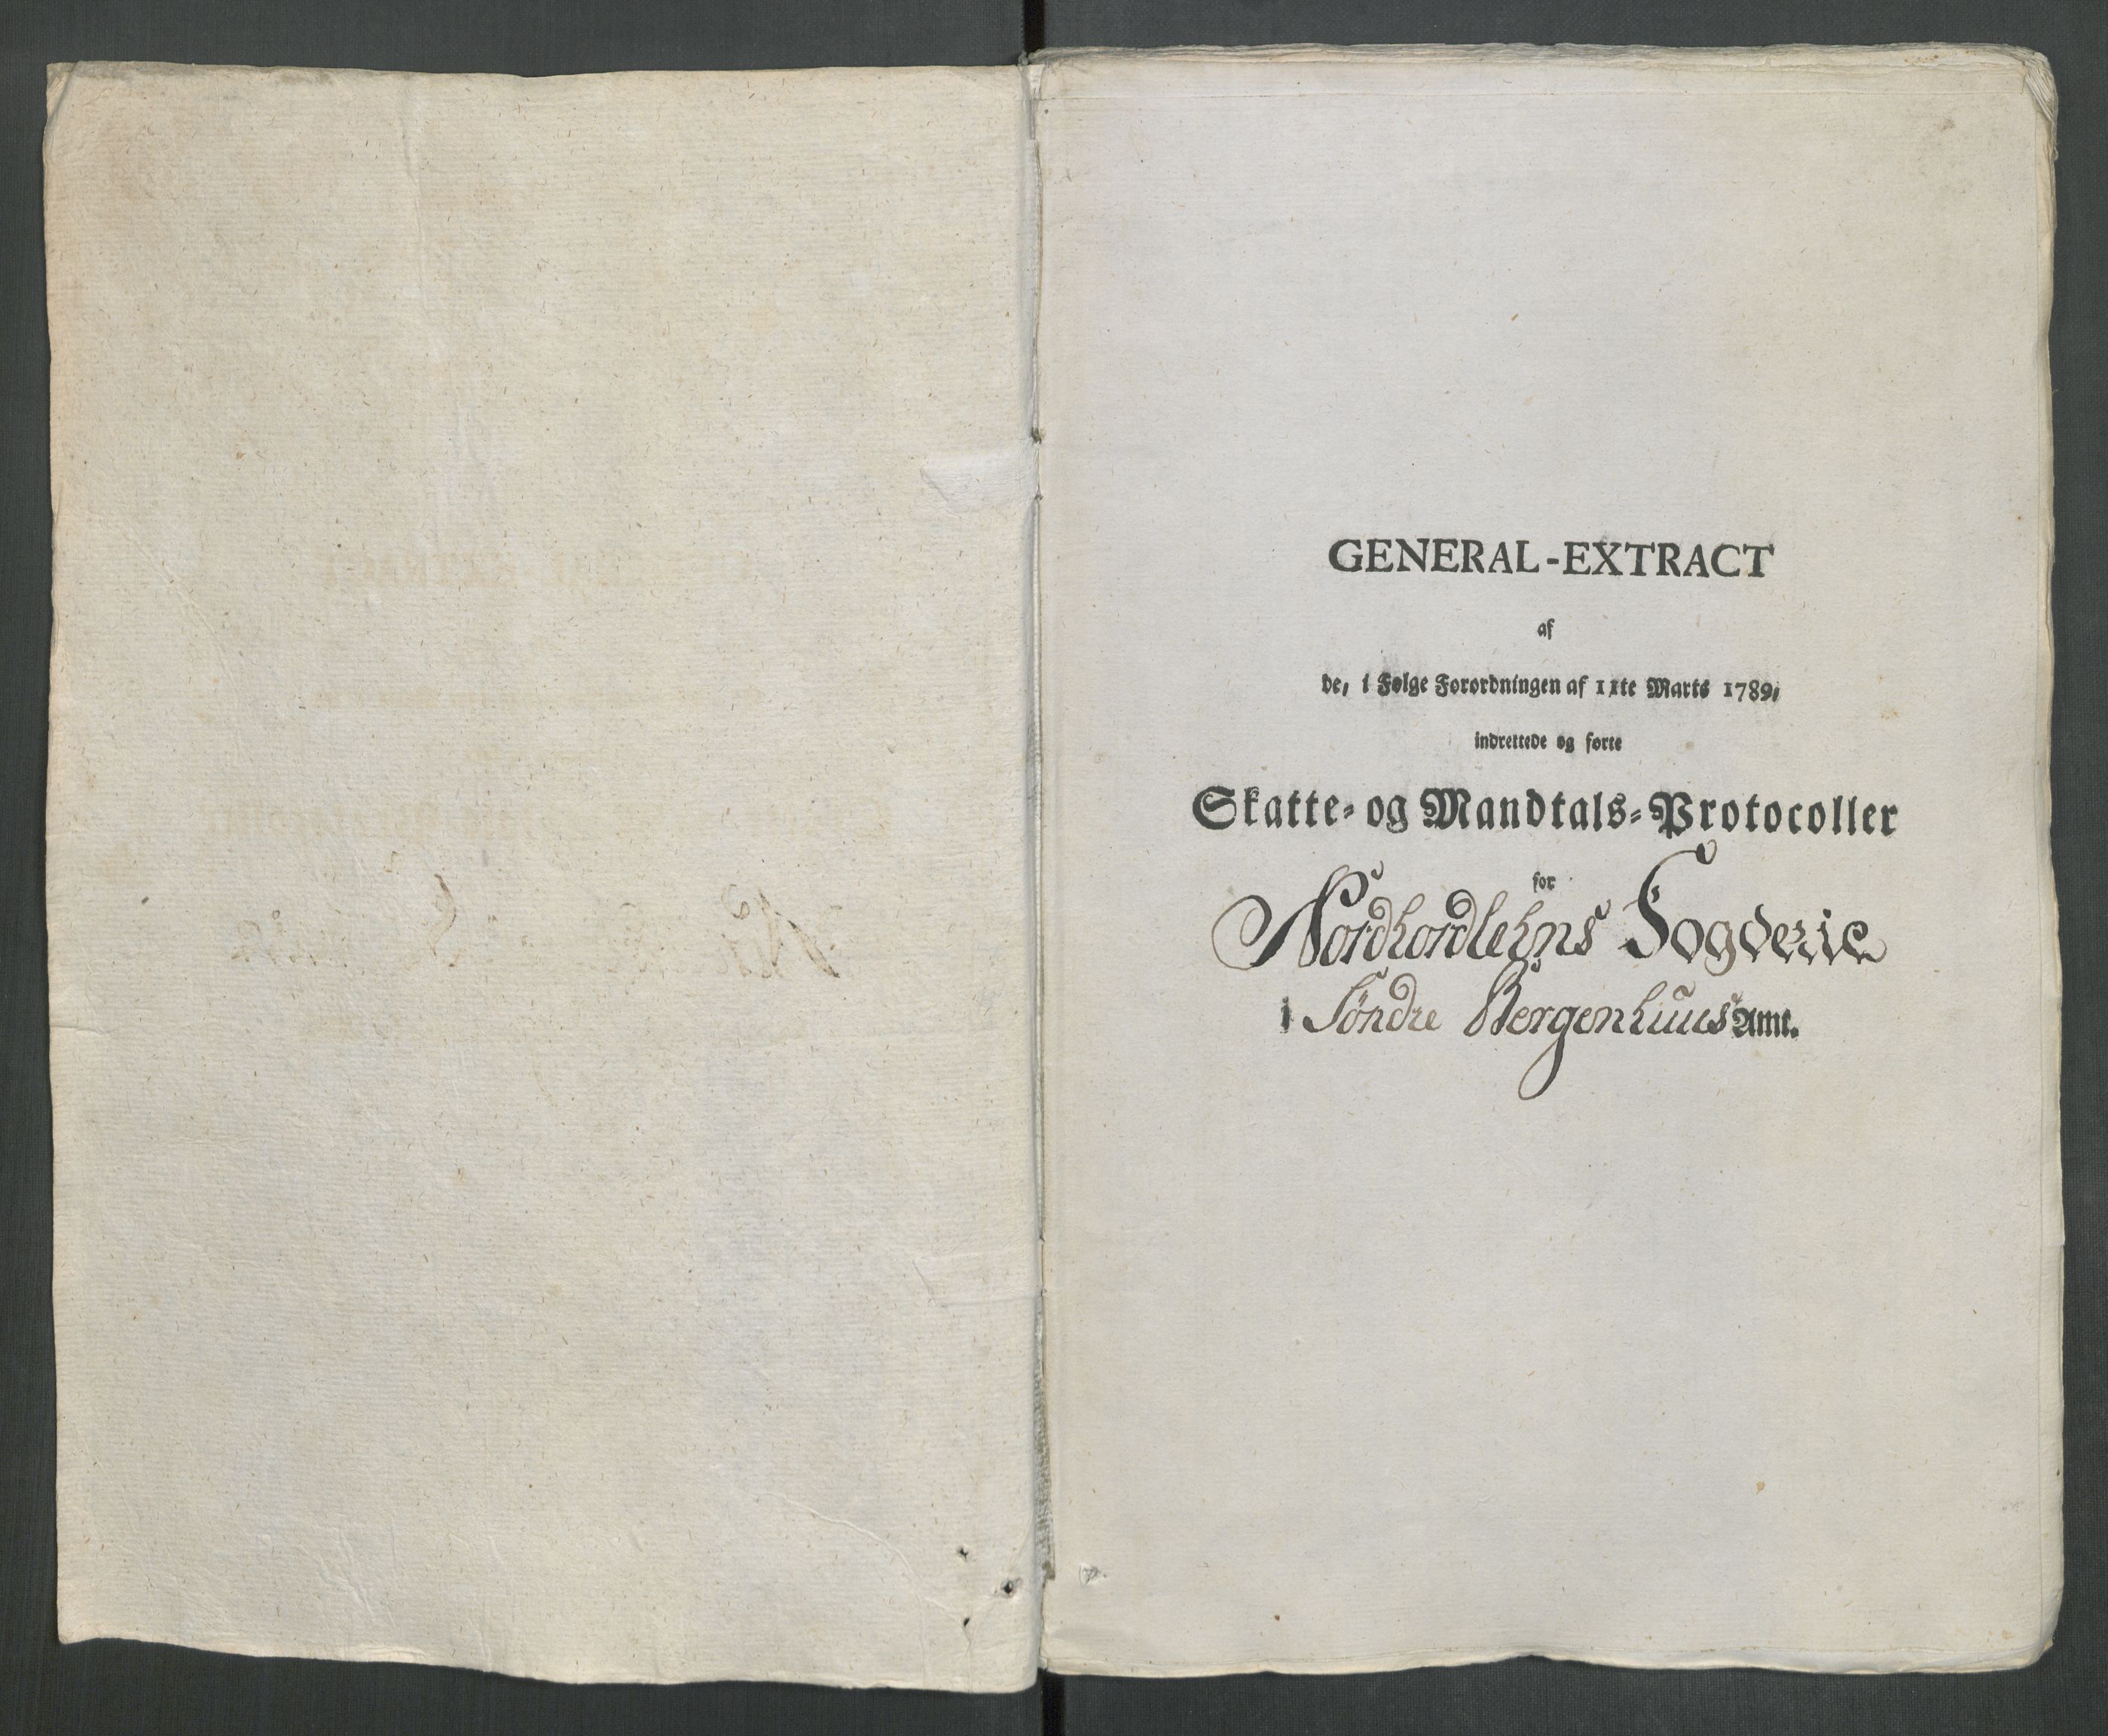 GENERAL-EXTRACT
af
de, i Følge Forordningen af 11te Marts 1789,
indrettede og førte
Skatte- og Mandtals-Protocoller
for
Nordhordlehns Fogderie
i Søndre Bergenhuus Amt.